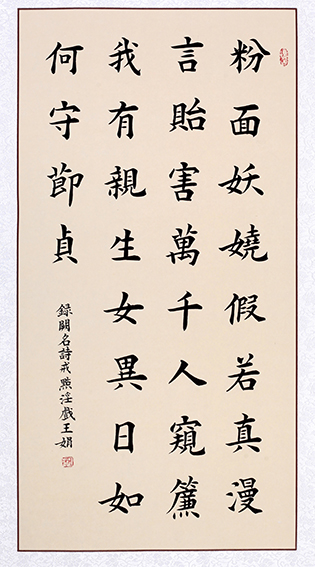 粉面妖嬈假若真漫
言貽害萬千人窺簾
我有親生女異日如
何守節貞
錄闕名詩戒點淫戲王娟